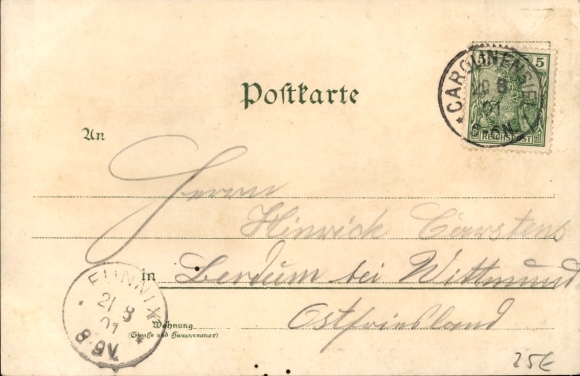 Postkarte
* CAROLINENSIEL
5
20 8
01
5-6N.
REICHSPOST
An
Herrn
Hinrich Carstens
in Berdum bei Wittmund
Ostfriesland
Wohnung
(Straße und Hausnummer)
FUNNIX *
21 8
01
8-9V.
25€